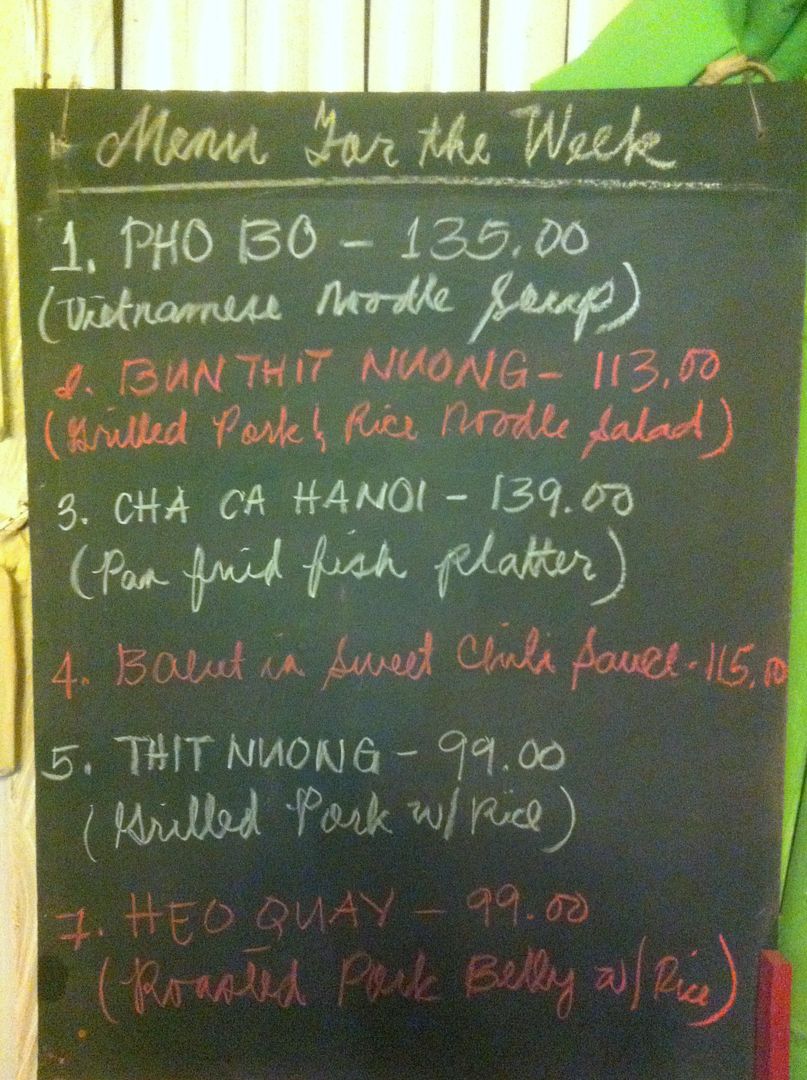 Menu For the Week
1. PHO BO - 135.00
(Vietnamese Noodle Soup)
2. BUN THIT NUONG - 113.00
(Grilled Pork & Rice Noodle Salad)
3. CHA CA HANOI - 139.00
(Pan fried fish platter)
4. Balut in Sweet Chili Sauce - 115.00
5. THIT NUONG - 99.00
(Grilled Pork w/ Rice)
7. HEO QUAY - 99.00
(Roasted Pork Belly w/ Rice)